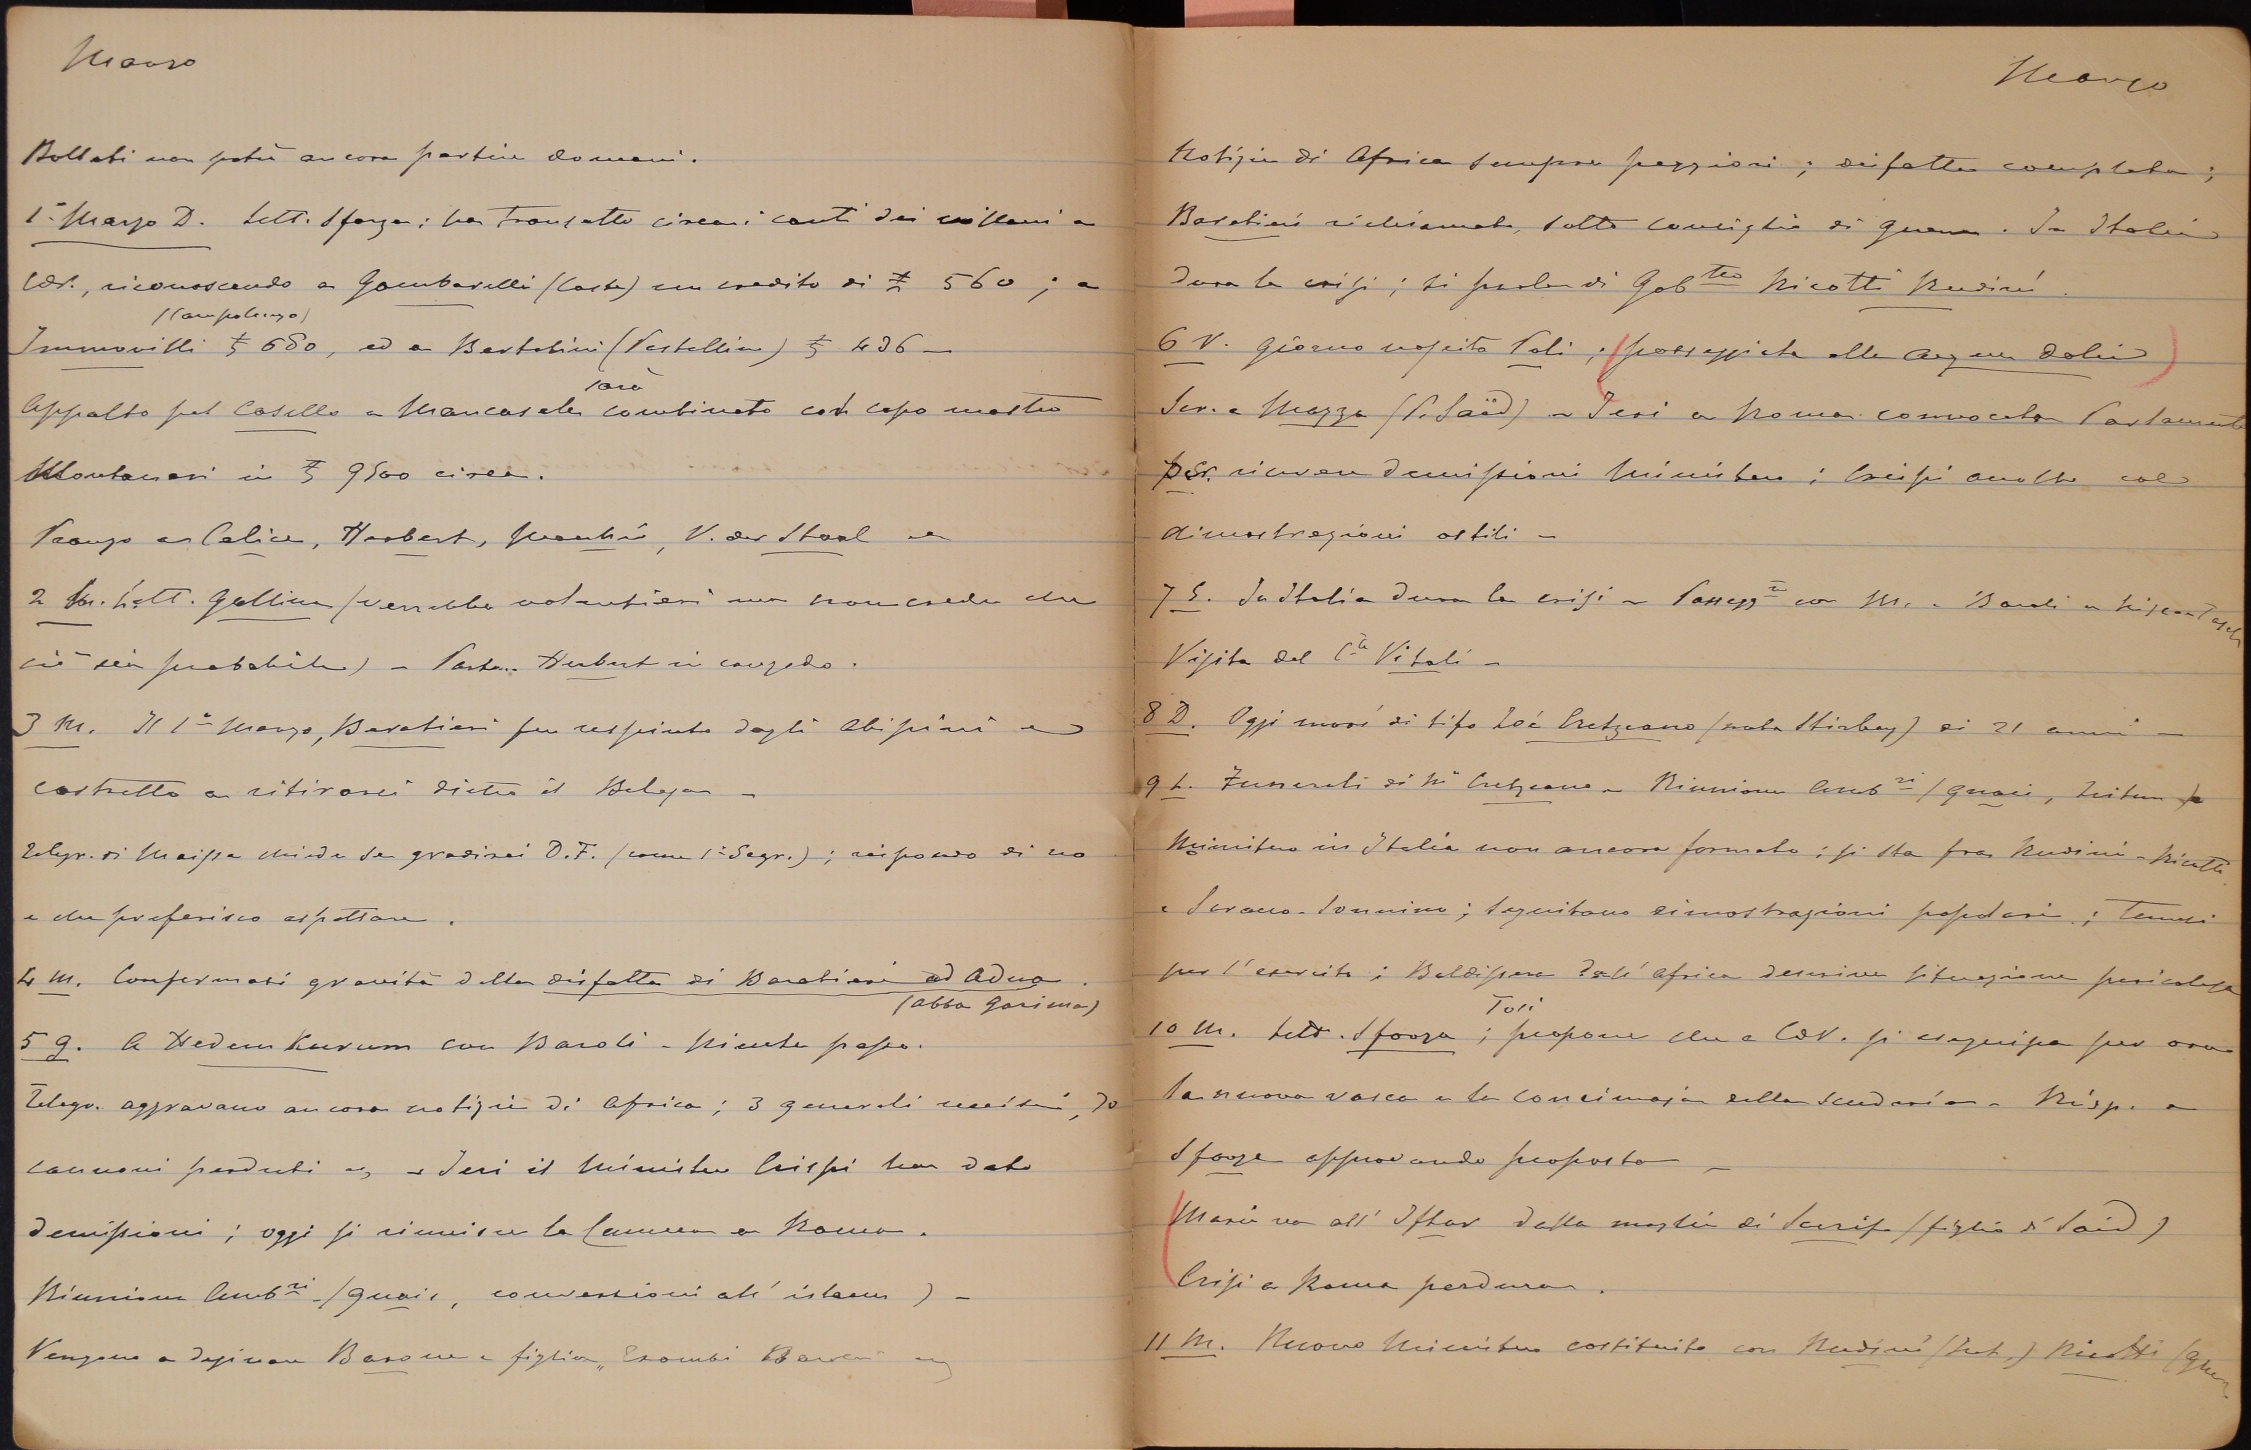 Marzo
Bollati non potè ancora partire domani.
1° Marzo D. Lett. Sforza: ha transatto circa i conti dei villani a
CdV., riconoscendo a Gambarelli (Costa) un credito di £ 560; a
(Campolungo)
Immovilli £ 680, ed a Bertolini (Pastellina) £ 436 –
sarà
Appalto pel Casello a Mancasale combinato col capo mastro
Montanari in £ 9500 circa.
Pranzo a Calice, Herbert, V. der Staal
2 L. Lett. Gallina (verrebbe volentieri ma non crede che
ciò sia probabile) – Parte Herbert in congedo.
3 M. Il 1° Marzo, Baratieri fu respinto dagli Abissini e
costretto a ritirarsi dietro il Belesa –
Telegr. di Maissa chiede se gradirei D.F. (come 1° Segr.); rispondo di no
e che preferisco aspettare.
4 M. Confermasi gravità della disfatta di Baratieri ad Adua.
(Abba Garima)
5 G. A Hedem Kurum con Baroli – Niente passo.
Telegr. aggravano ancora notizie di Africa; 3 generali uccisi, 70
cannoni perduti – Ieri il Ministero Crispi ha dato
demissioni; oggi si riunisce la Camera a Roma.
Riunione Amb.ri (Quais, conversioni all'islam) –
Vengono a desinare Barone e figlia,
Marzo
Notizie di Africa sempre peggiori; disfatta completa;
Baratieri richiamato, sotto consiglio di guerra. In Italia
dura la crisi; si parla di Gab.tto Ricotti Rudinì.
6 V. Giorno nascita Poli; (passeggiata alle acque dolci)
Scr. a Mazza (P. Saïd) – Ieri a Roma convocato Parlamento
per ricevere demissioni Ministero; Crispi accolto con
dimostrazioni ostili –
7 S. In Italia dura la crisi – Passegg.ta con M. e Baroli a Nisciantasch
Visita del C.te Vitali –
8 D. Oggi morì di tifo Zoé Cretzeano (nata Stirbey) di 21 anni –
9 L. Funerali di M.e Cretzeano – Riunione Amb.ri (Quais,
Ministero in Italia non ancora formato; si sta fra Rudinì-Ricotti
e Saracco-Sonnino; seguitano dimostrazioni popolari; Temesi
per l'esercito; Baldissera dall'Africa descrive situazione pericolosa
Tosi
10 M. Lett. Sforza; propone che a CdV. si eseguisca per ora
la nuova vasca e la concimaja nella scuderia – Risp. a
Sforza approvando proposta –
(Maria va all'Iftar dalla moglie di Scerif (figlio di Said)
Crisi a Roma perdura.
11 M. Nuovo Ministero costituito con Rudinì (Int.) Ricotti (Guerra